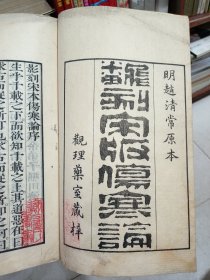 明趙清常原本
翻刻宋版傷寒論
觀理藥室藏梓
影刻宋本傷寒論序
生乎千載之下而欲知千載之上其道惡在曰